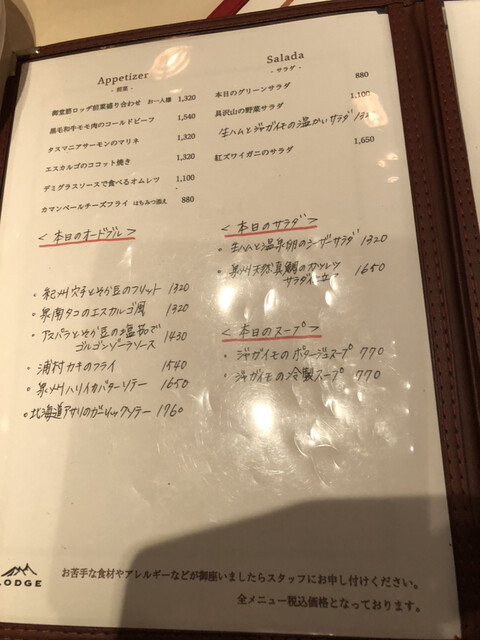 Appetizer
- 前菜 -
御堂筋ロッヂ前菜盛り合わせ お一人様 1,320
黒毛和牛モモ肉のコールドビーフ 1,540
タスマニアサーモンのマリネ 1,320
エスカルゴのココット焼き 1,320
デミグラスソースで食べるオムレツ 1,100
カマンベールチーズフライ はちみつ添え 880
<本日のオードブル>
・紀州穴子とそら豆のフリット 1320
・泉南タコのエスカルゴ風 1320
・アスパラとそら豆の温製
ゴルゴンゾーラソース 1430
・浦村カキのフライ 1540
・泉州ハリイカバターソテー 1650
・北海道アサリのガーリックソテー 1760
Salada
- サラダ -
本日のグリーンサラダ 880
具沢山の野菜サラダ 1,100
生ハムとジャガイモの温かいサラダ
紅ズワイガニのサラダ 1,650
<本日のサラダ>
・生ハムと温泉卵のシーザーサラダ 1320
・泉州天然真鯛のカツレツ
サラダ仕立て 1650
<本日のスープ>
・ジャガイモのポタージュスープ 770
・ジャガイモの冷製スープ 770
LODGE
お苦手な食材やアレルギーなどが御座いましたらスタッフにお申し付けください。
全メニュー税込価格となっております。